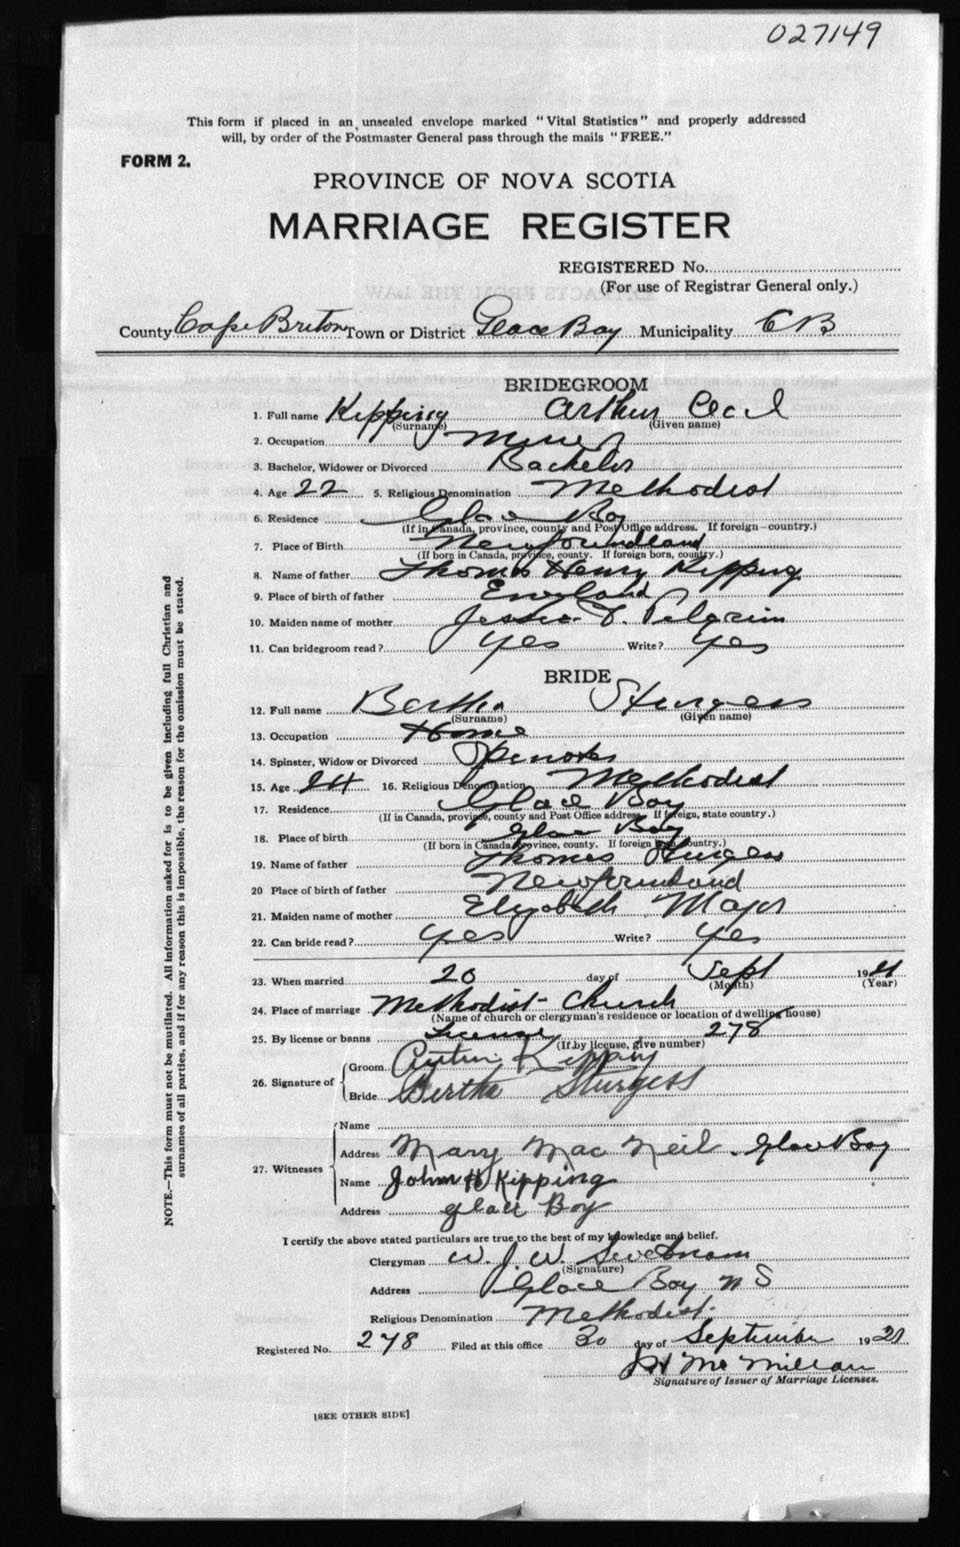 027149
This form if placed in an unsealed envelope marked "Vital Statistics" and properly addressed
will, by order of the Postmaster General pass through the mails "FREE."
FORM 2.
PROVINCE OF NOVA SCOTIA
MARRIAGE REGISTER
REGISTERED No.
(For use of Registrar General only.)
County Cape Breton Town or District Glace Bay Municipality C B
BRIDEGROOM
1. Full name Kipping Arthur Cecil
(Surname) (Given name)
2. Occupation Miner
3. Bachelor, Widower or Divorced Bachelor
4. Age 22 5. Religious Denomination Methodist
6. Residence Glace Bay
(If in Canada, province, county and Post Office address. If foreign—country.)
7. Place of Birth Newfoundland
(If born in Canada, province, county. If foreign born, country.)
8. Name of father Thomas Henry Kipping
9. Place of birth of father England
10. Maiden name of mother Jessie T. Pelgrim
11. Can bridegroom read? Yes Write? Yes
BRIDE
12. Full name Bertha Sturgess
(Surname) (Given name)
13. Occupation Home
14. Spinster, Widow or Divorced Spinster
15. Age 24 16. Religious Denomination Methodist
17. Residence Glace Bay
(If in Canada, province, county and Post Office address. If foreign, state country.)
18. Place of birth Glace Bay
(If born in Canada, province, county. If foreign born country.)
19. Name of father Thomas Sturgess
20 Place of birth of father Newfoundland
21. Maiden name of mother Elizabeth Major
22. Can bride read? Yes Write? Yes
23. When married 20 day of Sept 1921
(Month) (Year)
24. Place of marriage Methodist Church
(Name of church or clergyman's residence or location of dwelling house)
25. By license or banns License 278
(If by license, give number)
26. Signature of
Groom Kipping
Bride Bertha Sturgess
27. Witnesses
Name
Address Mary Mac Neil. Glace Bay
Name John H Kipping
Address Glace Bay
I certify the above stated particulars are true to the best of my knowledge and belief.
Clergyman W. J. W. Swetnam
(Signature)
Address Glace Bay N S
Religious Denomination Methodist
Registered No. 278 Filed at this office 30 day of September 1921
J H McMillan
Signature of Issuer of Marriage Licenses.
[SEE OTHER SIDE]
NOTE.—This form must not be mutilated. All information asked for is to be given including full Christian and
surnames of all parties, and if for any reason this is impossible, the reason for the omission must be stated.